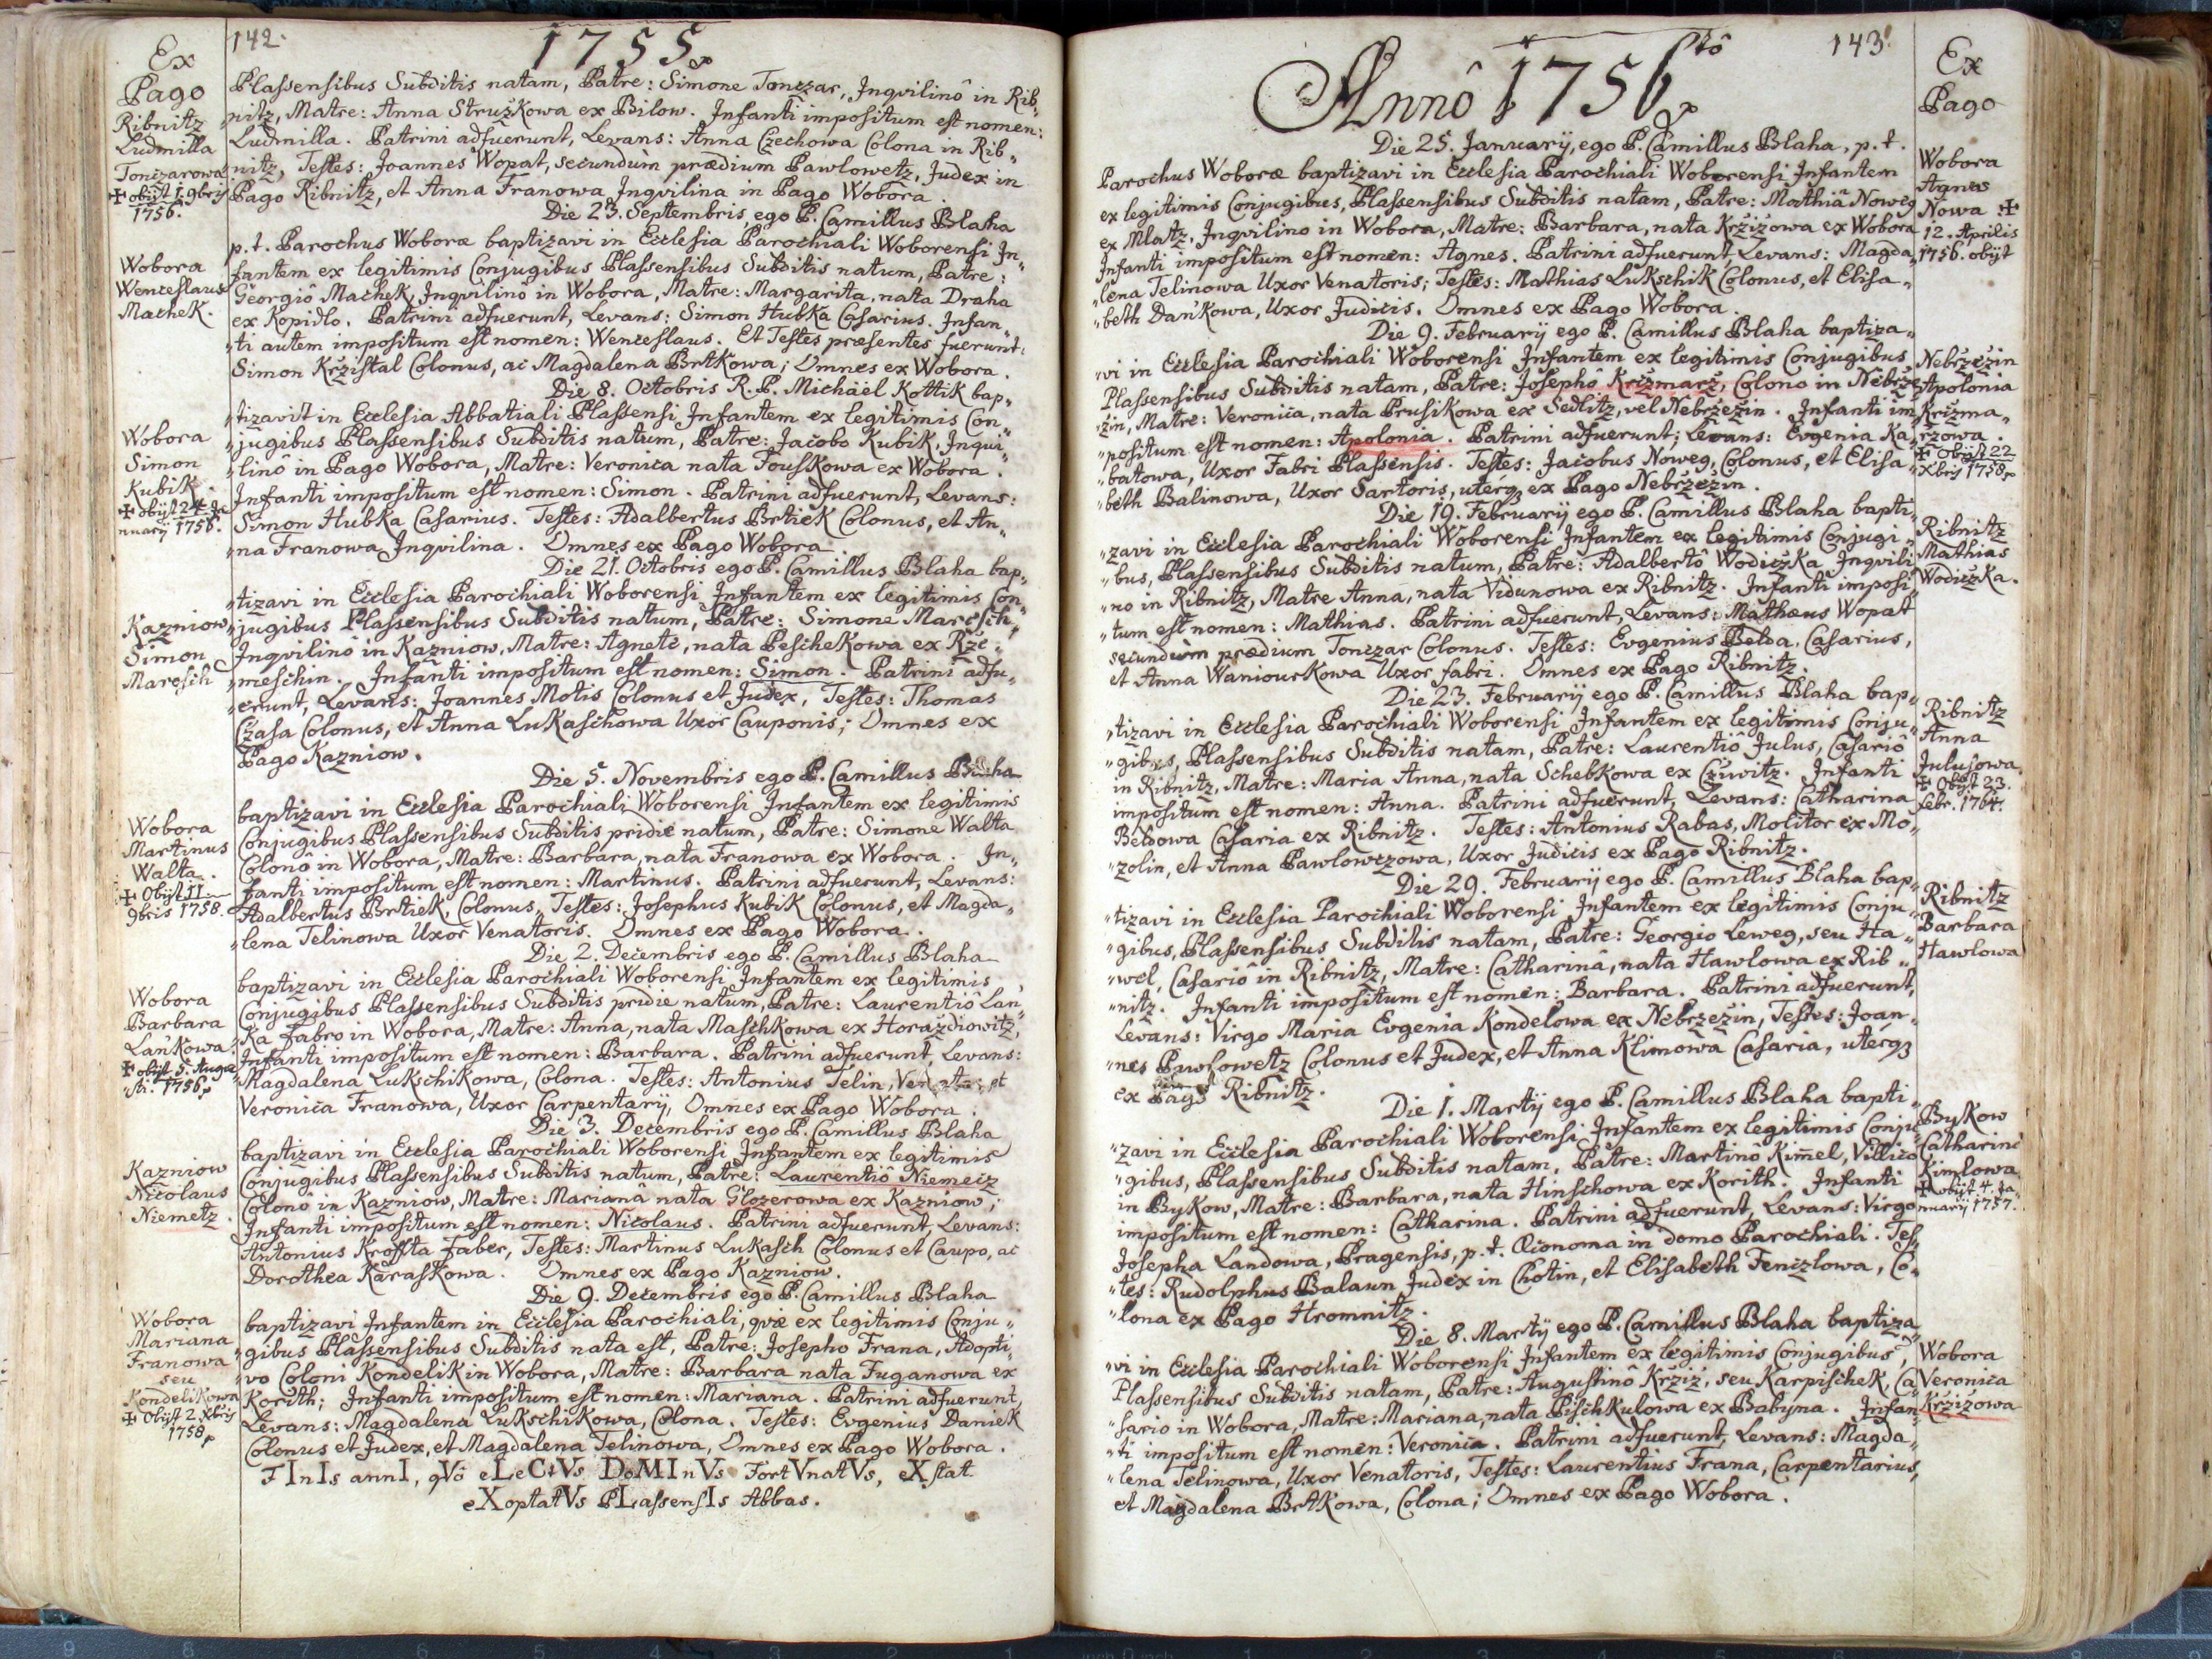 142.
1755.
Ex
Pago
Ribnitz
Ludmilla
Tonczarowa
✠ obijt 1. 9bris
1756.
Plassensibus Subditis natam, Patre: Simone Tonczar, Inqvilinô in Rib„
„nitz, Matre: Anna Strużkowa ex Bilow. Infanti impositum est nomen:
Ludmilla. Patrini adfuerunt, Levans: Anna Czechowa Colona in Rib„
„nitz, Testes: Joannes Wopat, secundùm prædium Pawlowetz, Judex in
Pago Ribnitz, et Anna Franowa, Inqvilina in Pago Wobora.
Die 23. Septembris, ego P. Camillus Blaha
Wobora
Wenceslaus
Machek.
p. t. Parochus Woboræ baptizavi in Ecclesia Parochiali Woborensi In„
fantem ex legitimis Conjugibus Plassensibus Subditis natum, Patre:
Georgiô Machek, Inqvilinô in Wobora, Matre: Margarita, nata Draha
ex Kopidlo. Patrini adfuerunt, Levans: Simon Hubka Casarius. Infan„
„ti autem impositum est nomen: Wenceslaus. Et Testes præsentes fuerunt:
Simon Kržistal Colonus, ac Magdalena Brtkowa; Omnes ex Wobora.
Die 8. Octobris R. P. Michaël Kottik bap„
Wobora
Simon
Kubik.
✠ obijt 24. Ja
nuarij 1756.
„tizavit in Ecclesia Abbatiali Plassensi Infantem ex legitimis Con„
„jugibus Plassensibus Subditis natum, Patre: Jacobo Kubik, Inqui„
„linô in Pago Wobora, Matre: Veronica nata Touskowa ex Wobora.
Infanti impositum est nomen: Simon. Patrini adfuerunt, Levans:
Simon Hubka Casarius. Testes: Adalbertus Brtiek Colonus, et An„
„na Franowa Inqvilina. Omnes ex Pago Wobora.
Die 21. Octobris ego P. Camillus Blaha bap„
Kazniow
Simon
Maresch
„tizavi in Ecclesia Parochiali Woborensi Infantem ex legitimis Con„
„jugibus Plassensibus Subditis natum, Patre: Simone Maresch,
Inqvilinô in Kazniow, Matre: Agnete, nata Peschekowa ex Rže„
„meschin. Infanti impositum est nomen: Simon. Patrini adfu„
„erunt, Levans: Joannes Motis Colonus et Judex, Testes: Thomas
Cžasa Colonus, et Anna Lukaschowa Uxor Cauponis; Omnes ex
Pago Kazniow.
Die 5. Novembris ego P. Camillus Blaha
Wobora
Martinus
Walta.
✠ Obijt 11.
9bris 1758.
baptizavi in Ecclesia Parochiali Woborensi Infantem ex legitimis
Conjugibus Plassensibus Subditis pridie natum, Patre: Simone Walta
Colonô in Wobora, Matre: Barbara, nata Franowa ex Wobora. In„
„fanti impositum est nomen: Martinus. Patrini adfuerunt, Levans:
Adalbertus Brtiek, Colonus, Testes: Josephus Kubik Colonus, et Magda„
„lena Telinowa Uxor Venatoris. Omnes ex Pago Wobora.
Die 2. Decembris ego P. Camillus Blaha
Wobora
Barbara
Lańkowa.
✠ obijt 5. Augu
„sti. 1756.
baptizavi in Ecclesia Parochiali Woborensi Infantem ex legitimis
Conjugibus Plassensibus Subditis pridie natum, Patre: Laurentiô Lan„
„ka Fabro in Wobora, Matre: Anna, nata Maschkowa ex Horaždiowitz,
Infanti impositum est nomen: Barbara. Patrini adfuerunt, Levans:
Magdalena Lukschikowa, Colona. Testes: Antonius Telin, et
Veronica Franowa, Uxor Carpentarij, Omnes ex Pago Wobora.
Die 3. Decembris ego P. Camillus Blaha
Kazniow
Nicolaus
Niemetz.
baptizavi in Ecclesia Parochiali Woborensi Infantem ex legitimis
Conjugibus Plassensibus Subditis natum, Patre: Laurentiô Niemecz
Colonô in Kazniow, Matre: Marianâ nata Glozerowa ex Kazniow;
Infanti impositum est nomen: Nicolaus. Patrini adfuerunt, Levans:
Antonius Krofta Faber, Testes: Martinus Lukasch Colonus et Caupo, ac
Dorothea Karaskowa. Omnes ex Pago Kazniow.
Die 9. Decembris ego P. Camillus Blaha
Wobora
Mariana
Franowa
seu
Kondelikowa
✠ Obijt 2. Xbris
1758.
baptizavi Infantem in Ecclesia Parochiali, qvæ ex legitimis Conju„
„gibus Plassensibus Subditis nata est, Patre: Josepho Frana, Adopti„
„vo Coloni Kondelik in Wobora, Matre: Barbara nata Fuganowa ex
Korith; Infanti impositum est nomen: Mariana. Patrini adfuerunt,
Levans: Magdalena Lukschikowa, Colona. Testes: Evgenius Daniek
Colonus et Judex, et Magdalena Telinowa, Omnes ex Pago Wobora.
FInIs annI, qVô eLeCtVs DoMInVs FortVnatVs, eXstat
eXoptatVs PLassensIs Abbas.
143.
Annô 1756tô
Ex
Pago
Die 25. Januarij, ego P. Camillus Blaha, p. t.
Parochus Woboræ baptizavi in Ecclesia Parochiali Woborensi Infantem
ex legitimis Conjugibus, Plassensibus Subditis natam, Patre: Mathiâ Noweg
ex Mlatz, Inqvilino in Wobora, Matre: Barbara, nata Kržižowa ex Wobora
Infanti impositum est nomen: Agnes. Patrini adfuerunt, Levans: Magda„
„lena Telinowa Uxor Venatoris; Testes: Mathias Lukschik Colonus, et Elisa„
„beth Dańkowa, Uxor Judicis. Omnes ex Pago Wobora.
Wobora
Agnes
Nowa ✠
12. Aprilis
1756. obijt
Die 9. Februarij ego P. Camillus Blaha baptiza„
„vi in Ecclesia Parochiali Woborensi Infantem ex legitimis Conjugibus
Plassensibus Subditis natam, Patre: Josephô Križmarž, Colono in Nebrže„
„zin, Matre: Veronica, nata Prusikowa ex Sedlitz, vel Nebržežin. Infanti im„
„positum est nomen: Apolonia. Patrini adfuerunt; Levans: Evgenia Ka„
„batowa, Uxor Fabri Plassensis. Testes: Jacobus Noweg, Colonus, et Elisa„
„beth Balinowa, Uxor Sartoris, uterq3 ex Pago Nebržežin.
Nebržežin
Apolonia
Križma„
„ržowa.
✠ Obijt 22
Xbris 1758.
Die 19. Februarij ego P. Camillus Blaha bapti„
„zavi in Ecclesia Parochiali Woborensi Infantem ex legitimis Conjugi„
„bus, Plassensibus Subditis natum, Patre: Adalbertô Wodiczka Inqvili„
„no in Ribnitz, Matre Anna, nata Vidunowa ex Ribnitz. Infanti imposi„
„tum est nomen: Mathias. Patrini adfuerunt, Levans: Mathæus Wopat
secundum prædium Tonczar Colonus. Testes: Evgenius Belda, Casarius,
et Anna Waniourkowa Uxor fabri. Omnes ex Pago Ribnitz.
Ribnitz
Mathias
Wodiczka.
Die 23. Februarij ego P. Camillus Blaha bap„
„tizavi in Ecclesia Parochiali Woborensi Infantem ex legitimis Conju„
„gibus, Plassensibus Subditis natam, Patre: Laurentiô Julus, Casariô
in Ribnitz, Matre: Maria Anna, nata Schebkowa ex Cžiwitz. Infanti
impositum est nomen: Anna. Patrini adfuerunt, Levans: Catharina
Beldowa Casaria ex Ribnitz. Testes: Antonius Rabas, Molitor ex Mo„
„zolin, et Anna Pawlowczowa, Uxor Judicis ex Pago Ribnitz.
Ribnitz
Anna
Julusowa.
✠ Obijt 23.
febr. 1764.
Die 29. Februarij ego P. Camillus Blaha bap„
„tizavi in Ecclesia Parochiali Woborensi Infantem ex legitimis Conju„
„gibus, Plassensibus Subditis natam, Patre: Georgio Leweg, seu Ha„
„wel, Casariô in Ribnitz, Matre: Catharinâ, nata Hawlowa ex Rib„
„nitz. Infanti impositum est nomen: Barbara. Patrini adfuerunt,
Levans: Virgo Maria Evgenia Kondelowa ex Nebržežin, Testes: Joan„
„nes Pawlowetz Colonus et Judex, et Anna Klimowa Casaria, uterq3
ex Pago Ribnitz.
Ribnitz
Barbara
Hawlowa
Die 1. Martij ego P. Camillus Blaha bapti„
„zavi in Ecclesia Parochiali Woborensi Infantem ex legitimis Conju„
„gibus, Plassensibus Subditis natam, Patre: Martinô Kim̄el, Villico
in Bykow, Matre: Barbara, nata Hinschowa ex Korith. Infanti
impositum est nomen: Catharina. Patrini adfuerunt, Levans: Virgo
Josepha Landowa, Pragensis, p. t. Œconoma in domo Parochiali. Tes„
„tes: Rudolphus Balaun Judex in Chotin, et Elisabeth Fenczlowa, Co„
„lona ex Pago Hromnitz.
Bykow
Catharina
Kimlowa
✠ obijt 4. Ja„
nuarij 1757.
Die 8. Martij ego P. Camillus Blaha baptiza„
„vi in Ecclesia Parochiali Woborensi Infantem ex legitimis Conjugibus,
Plassensibus Subditis natam, Patre: Augustinô Kržiž, seu Karpischek, Ca„
„sario in Wobora, Matre: Mariana, nata Pischkulowa ex Babyna. Infan„
„ti impositum est nomen: Veronica. Patrini adfuerunt, Levans: Magda„
„lena Telinowa, Uxor Venatoris, Testes: Laurentius Frana, Carpentarius,
et Magdalena Brtkowa, Colona; Omnes ex Pago Wobora.
Wobora
Veronica
Kržižowa